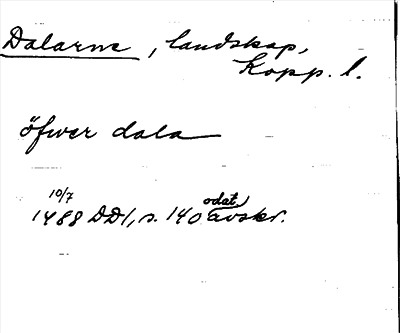 Dalarne, landskap,
Kopp. l.
öfwer dala
10/7
1488 DD 1, s. 140 odat. avskr.